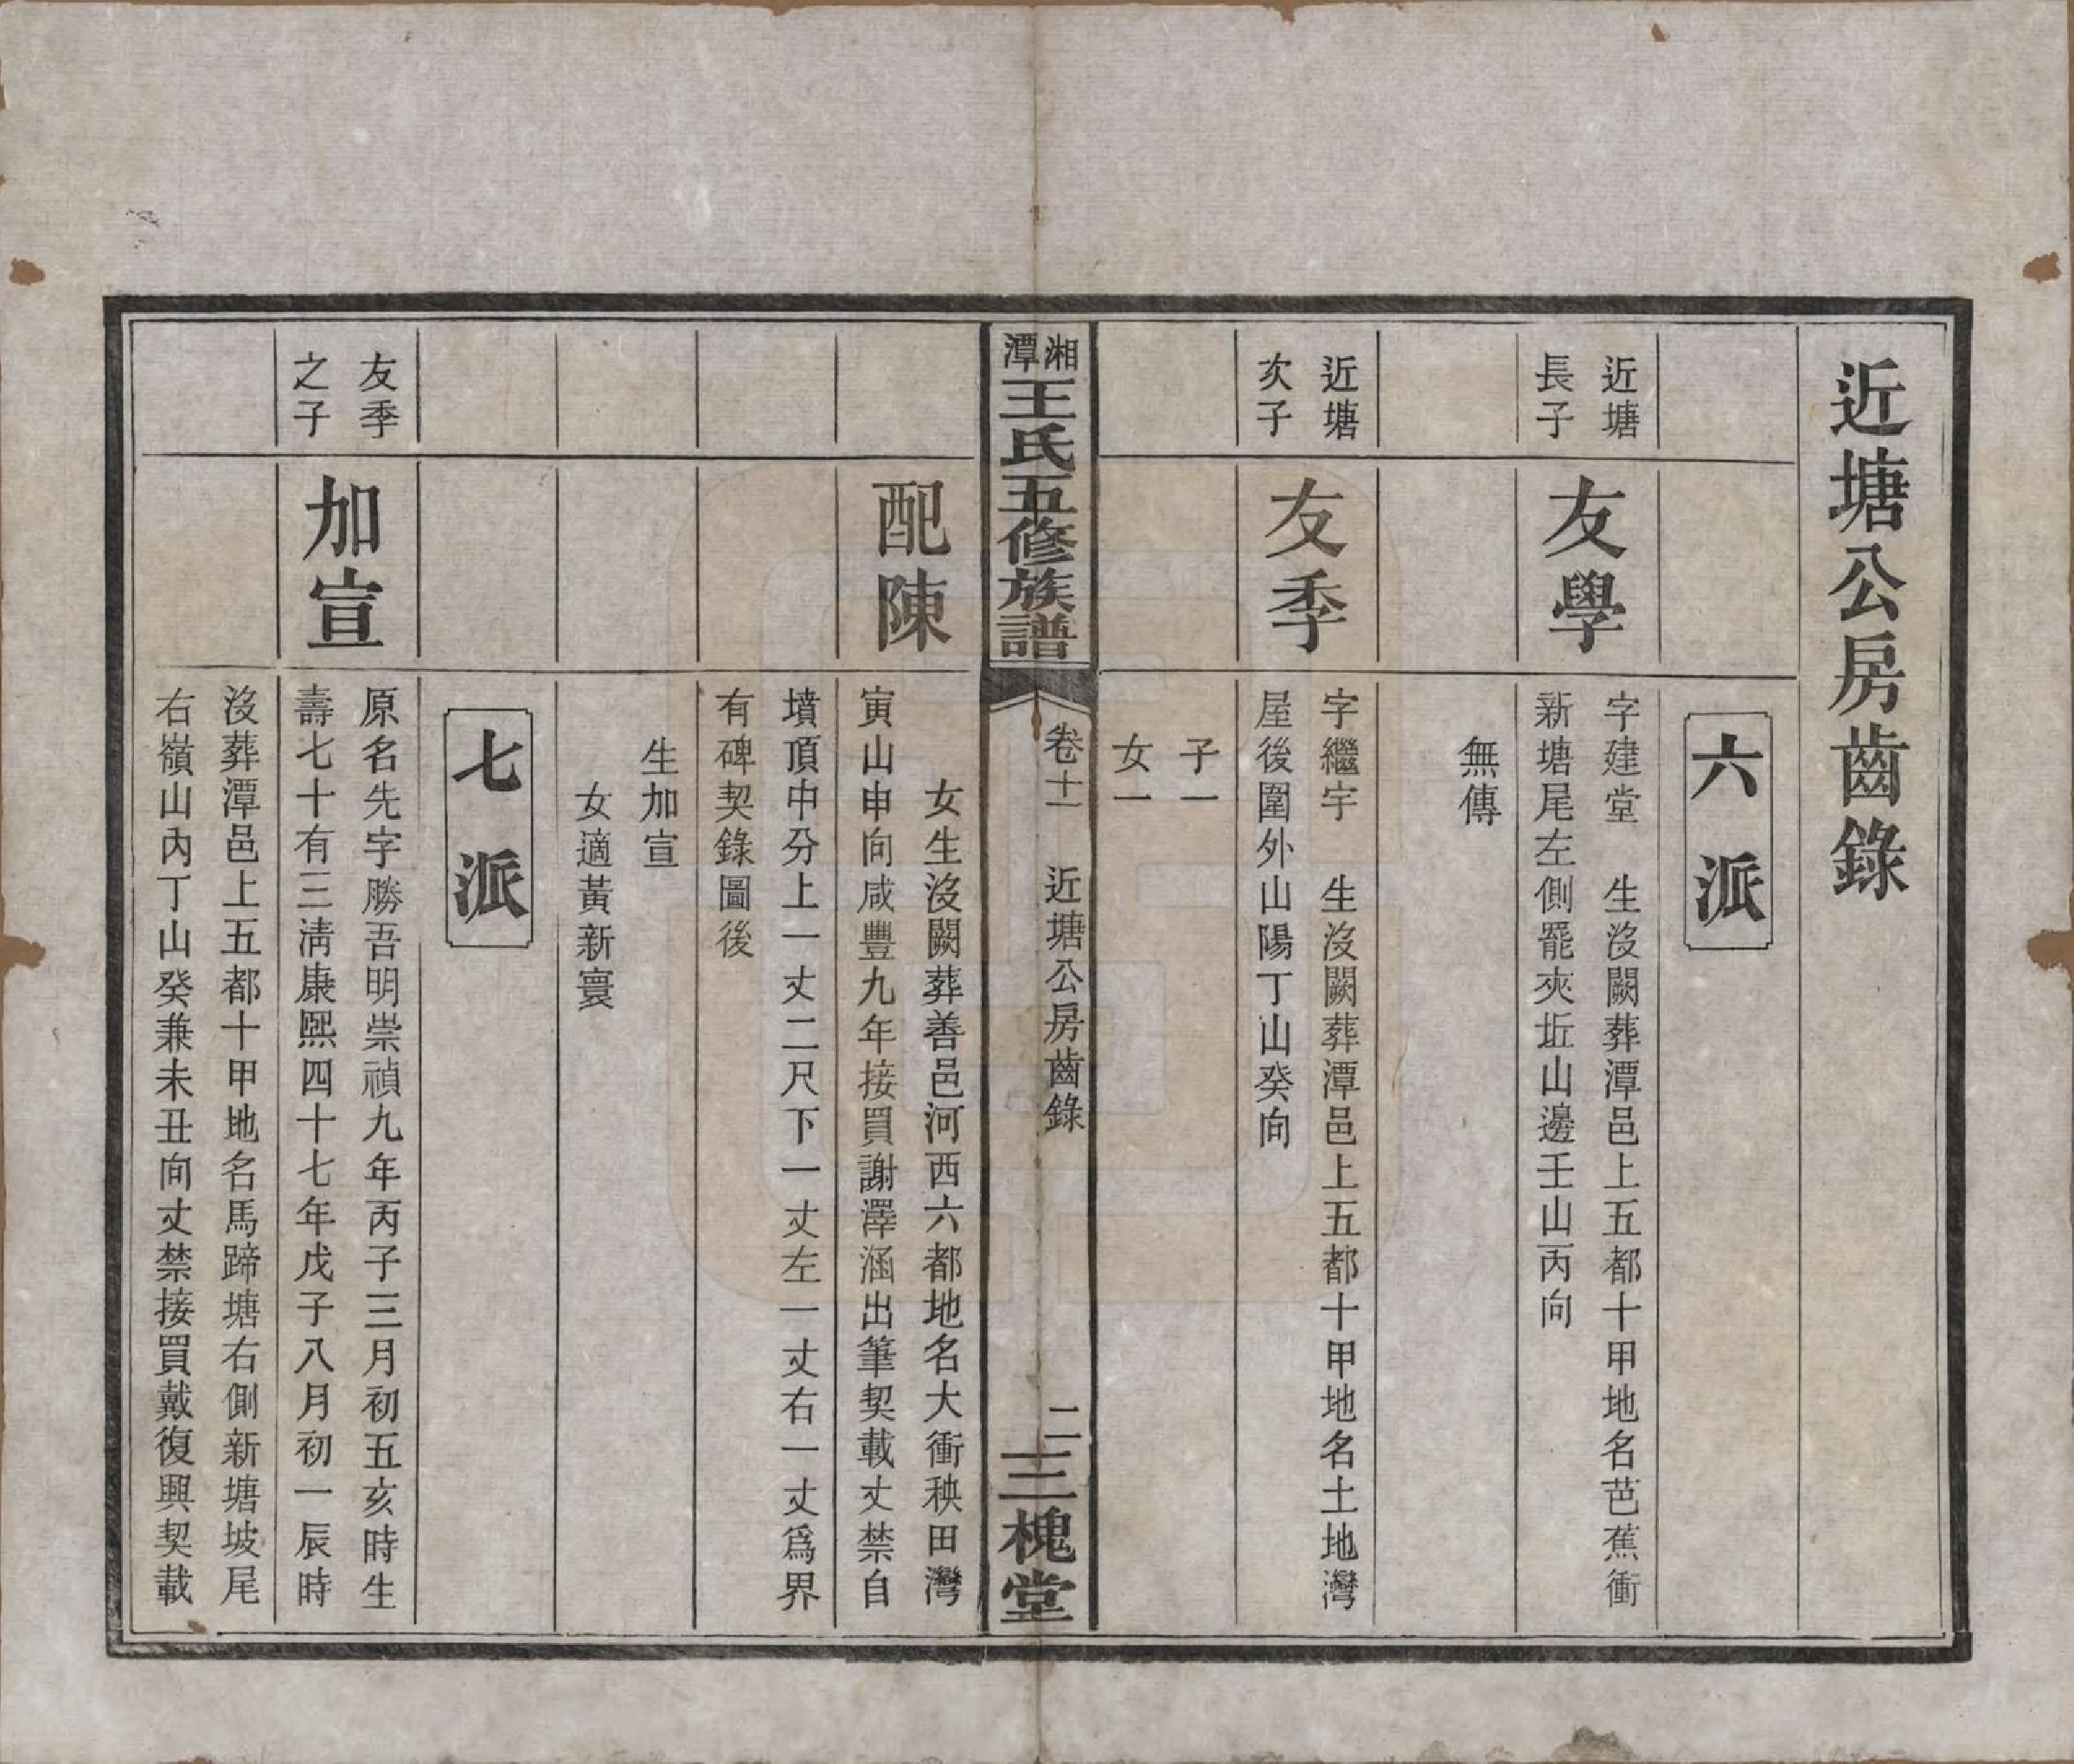 近塘公房齒錄
六派
近塘
長子
友學
字建堂　生沒闕葬潭邑上五都十甲地名芭蕉衝
新塘尾左側罷夾坵山邊壬山丙向
無傳
近塘
次子
友季
字繼宇　生沒闕葬潭邑上五都十甲地名土地灣
屋後圍外山陽丁山癸向
子一
女一
湘潭王氏五修族譜
卷十一　近塘公房齒錄
二
三槐堂
配陳
女生沒闕葬善邑河西六都地名大衝秧田灣
寅山申向咸豐九年接買謝澤涵出筆契載丈禁自
墳頂中分上一丈二尺下一丈左一丈右一丈爲界
有碑契錄圖後
生加宣
女適黃新寰
七派
友季
之子
加宣
原名先字勝吾明崇禎九年丙子三月初五亥時生
壽七十有三淸康熙四十七年戊子八月初一辰時
沒葬潭邑上五都十甲地名馬蹄塘右側新塘坡尾
右嶺山內丁山癸兼未丑向丈禁接買戴復興契載